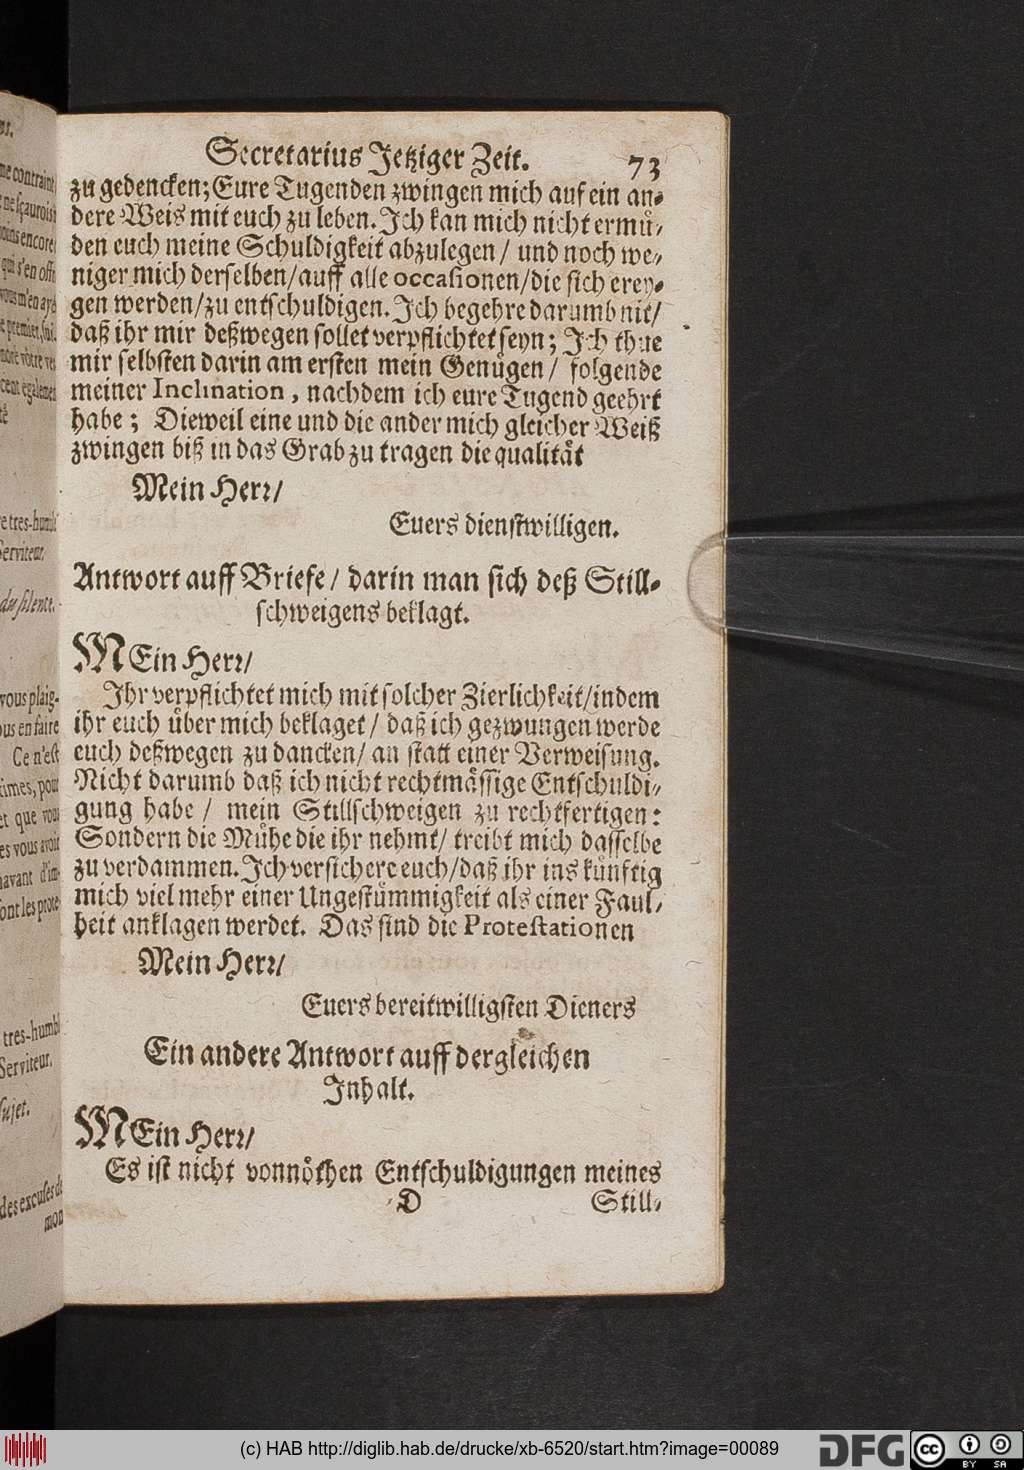 Secretarius Jetziger Zeit. 73
zu gedencken; Eure Tugenden zwingen mich auf ein an-
dere Weis mit euch zu leben. Ich kan mich nicht ermů-
den euch meine Schuldigkeit abzulegen / und noch we-
niger mich derselben/auff alle occasionen/die sich erey-
gen werden/zu entschuldigen. Ich begehre darumb nit/
daß ihr mir deßwegen sollet verpflichtet seyn; Ich thue
mir selbsten darin am ersten mein Genůgen / folgende
meiner Inclination, nachdem ich eure Tugend geehrt
habe; Dieweil eine und die ander mich gleicher Weiß
zwingen biß in das Grab zu tragen die qualitåt
Mein Herr/
Euers dienstwilligen.
Antwort auff Briefe / darin man sich deß Still-
schweigens beklagt.
MEin Herr/
Ihr verpflichtet mich mit solcher Zierlichkeit/indem
ihr euch ůber mich beklaget / daß ich gezwungen werde
euch deßwegen zu dancken/ an statt einer Verweisung.
Nicht darumb daß ich nicht rechtmåssige Entschuldi-
gung habe / mein Stillschweigen zu rechtfertigen:
Sondern die Můhe die ihr nehmt/ treibt mich dasselbe
zu verdammen. Ich versichere euch/daß ihr ins kůnftig
mich viel mehr einer Ungestůmmigkeit als einer Faul-
heit anklagen werdet. Das sind die Protestationen
Mein Herr/
Euers bereitwilligsten Dieners
Ein andere Antwort auff dergleichen
Inhalt.
MEin Herr/
Es ist nicht vonno̊then Entschuldigungen meines
D Still-
ne contraint
ne sçaurois
encore
qui s'en off
vous m'en aye
e premier, sui-
vôtre
cent egalement
té
e tres-humbl
Serviteur.
du silence.
vous plaig-
ous en faire
Ce n'est
times, pour
et que vous
es vous avoir
avant d'im-
font les prote-
tres-humbl
Serviteur.
sujet.
des excuses de
mon
(c) HAB http://diglib.hab.de/drucke/xb-6520/start.htm?image=00089
DFG cc BY SA